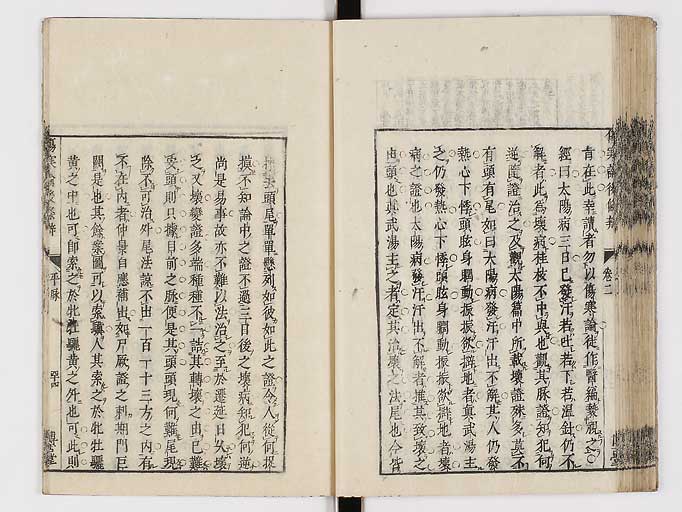 肯在此幸讀者勿以傷寒論徒作醫編褻觀之
經曰太陽病三日已發汗若吐若下若溫針仍不
解者此為壞病桂枝不中與也觀其脉證知犯何
逆隨證治之及觀太陽篇中所載壞證殊多莫不
有頭有尾如曰太陽病發汗汗出不解其人仍發
熱心下悸頭眩身瞤動振振欲擗地者真武湯主
之仍發熱心下悸頭眩身瞤動振振欲擗地者壞
病之證也太陽病發汗汗出不解者推其致壞之
由頭也真武湯主之者定其治壞之法尾也今皆
卷二
頭尾單單懸列如彼如此之證令人從何捉
摸不知論中之證不過三日後之壞病知犯何逆
尚是易事故亦不難以法治之至於遷延日久壞
之又壞變證多端種種不一詰其轉壞之由已難
要頭則只據目前之脉便是其頭頭現何難尾現
除不可治外尾法諒不出一百一十三方之内有
不在内者仲景自應補出如尸厥證之刺期門巨
闕是也其餘案圖可以索驥人其索之於牝牡驪
黃之中也可即索之於牝牡驪黃之外也可此則
平脉